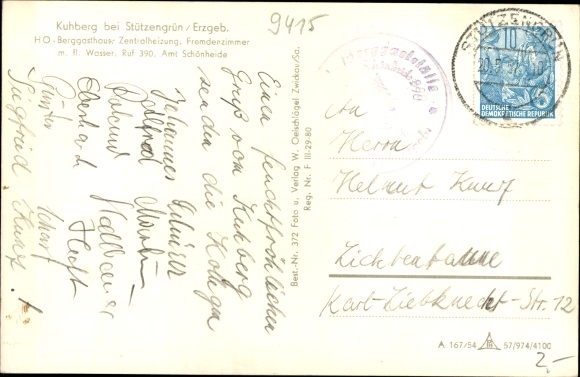 Kuhberg bei Stützengrün / Erzgeb.
HO-Berggasthaus: Zentralheizung, Fremdenzimmer
m. fl. Wasser. Ruf 390, Amt Schönheide
9415
Einen feuchtfröhlichen
Gruß vom Kuhberg
senden die Kollegen
Johannes
Roland
Günter
Siegfried Kunz
Best.-Nr. 372 Foto u. Verlag W. Oelschlägel Zwickau/Sa.
Reg. Nr. F III-29-80
Berggaststätte
STÜTZENGRÜN
10
DEUTSCHE
DEMOKRATISCHE REPUBLIK
An
Herrn
Helmut Kunz
Lichtentanne
Karl-Liebknecht-Str. 12
A 167/54 57/974/4100
2,-